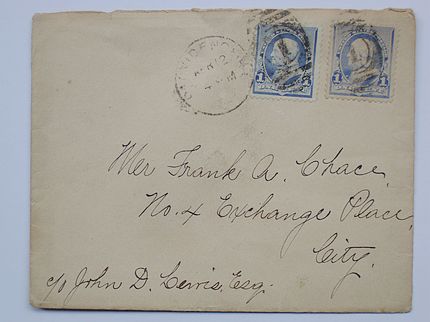 PROVIDENCE
APR 12
4 PM
1 1
1 1
Mr Frank A. Chace
No. 4 Exchange Place,
City.
c/o John D. Lewis, Esq.